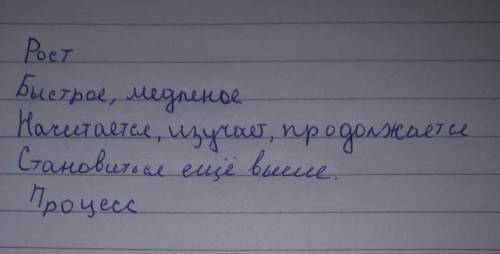 Рост
Быстрое, медленое
Начитается, изучает, продолжается
Становиться ещё выше.
Процесс